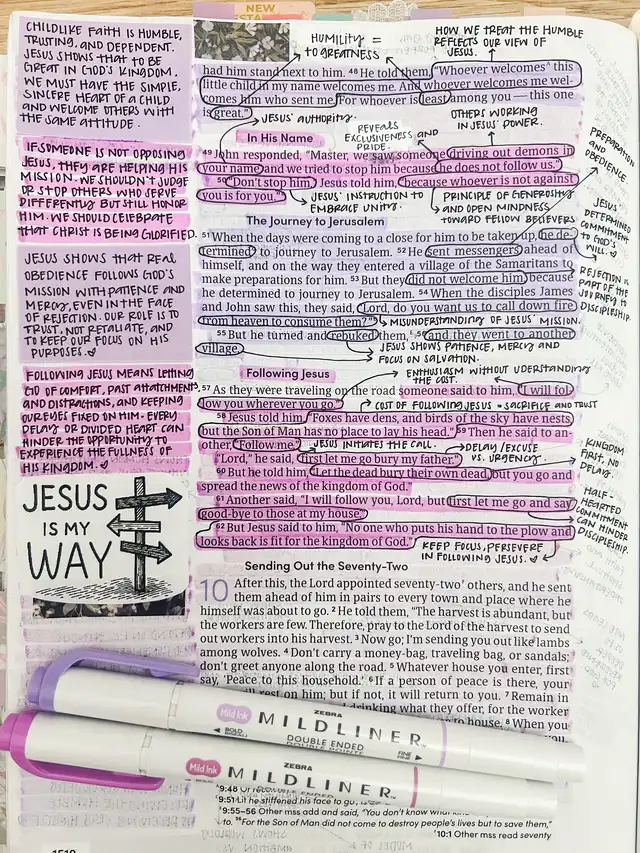 NEW
CHILDLIKE FAITH IS HUMBLE,
TRUSTING, AND DEPENDENT.
JESUS SHOWS THAT TO BE
GREAT IN GOD'S KINGDOM,
WE MUST HAVE THE SIMPLE,
SINCERE HEART OF A CHILD
AND WELCOME OTHERS WITH
THE SAME ATTITUDE.
IF SOMEONE IS NOT OPPOSING
JESUS, THEY ARE HELPING HIS
MISSION. WE SHOULDN'T JUDGE
OR STOP OTHERS WHO SERVE
DIFFERENTLY BUT STILL HONOR
HIM. WE SHOULD CELEBRATE
THAT CHRIST IS BEING GLORIFIED.
JESUS SHOWS THAT REAL
OBEDIENCE FOLLOWS GOD'S
MISSION WITH PATIENCE AND
MERCY, EVEN IN THE FACE
OF REJECTION. OUR ROLE IS TO
TRUST, NOT RETALIATE, AND
TO KEEP OUR FOCUS ON HIS
PURPOSES.
FOLLOWING JESUS MEANS LETTING
GO OF COMFORT, PAST ATTACHMENTS,
AND DISTRACTIONS, AND KEEPING
OUR EYES FIXED ON HIM. EVERY
DELAY OR DIVIDED HEART CAN
HINDER THE OPPORTUNITY TO
EXPERIENCE THE FULLNESS OF
HIS KINGDOM.
JESUS
IS MY
WAY
HUMILITY =
TO GREATNESS
HOW WE TREAT THE HUMBLE
REFLECTS OUR VIEW OF
JESUS.
had him stand next to him. 48 He told them, "Whoever welcomes this
little child in my name welcomes me. And whoever welcomes me wel-
comes him who sent me. For whoever is least among you — this one
is great."
JESUS' AUTHORITY.
OTHERS WORKING
IN JESUS' POWER.
REVEALS
EXCLUSIVENESS AND
PRIDE.
In His Name
49 John responded, "Master, we saw someone driving out demons in
your name and we tried to stop him because he does not follow us."
50 "Don't stop him," Jesus told him, "because whoever is not against
you is for you."
JESUS' INSTRUCTION TO
EMBRACE UNITY.
PRINCIPLE OF GENEROSITY
AND OPEN MINDNESS
TOWARD FELLOW BELIEVERS
PREPARATION
AND
OBEDIENCE
JESUS'
DETERMINED
COMMITMENT
TO GOD'S
WILL.
The Journey to Jerusalem
51 When the days were coming to a close for him to be taken up, he de-
termined to journey to Jerusalem. 52 He sent messengers ahead of
himself, and on the way they entered a village of the Samaritans to
make preparations for him. 53 But they did not welcome him, because
he determined to journey to Jerusalem. 54 When the disciples James
and John saw this, they said, "Lord, do you want us to call down fire
from heaven to consume them?"
MISUNDERSTANDING OF JESUS' MISSION.
55 But he turned and rebuked them, 56 and they went to another
village.
JESUS SHOWS PATIENCE, MERCY AND
FOCUS ON SALVATION.
REJECTION IS
PART OF THE
JOURNEY TO
DISCIPLESHIP.
ENTHUSIASM WITHOUT UDERSTANDING
THE COST.
Following Jesus
57 As they were traveling on the road someone said to him, "I will fol-
low you wherever you go."
COST OF FOLLOWING JESUS = SACRIFICE AND TRUST
58 Jesus told him, "Foxes have dens, and birds of the sky have nests,
but the Son of Man has no place to lay his head." 59 Then he said to an-
other, "Follow me."
JESUS INITIATES THE CALL.
DELAY/EXCUSE
VS. URGENCY.
"Lord," he said, "first let me go bury my father."
60 But he told him, "Let the dead bury their own dead, but you go and
spread the news of the kingdom of God."
KINGDOM
FIRST, NO
DELAY.
61 Another said, "I will follow you, Lord, but first let me go and say
good-bye to those at my house."
62 But Jesus said to him, "No one who puts his hand to the plow and
looks back is fit for the kingdom of God."
KEEP FOCUS, PERSEVERE
IN FOLLOWING JESUS.
HALF-
HEARTED
COMMITMENT
CAN HINDER
DISCIPLESHIP.
Sending Out the Seventy-Two
10 After this, the Lord appointed seventy-two others, and he sent
them ahead of him in pairs to every town and place where he
himself was about to go. 2 He told them, "The harvest is abundant, but
the workers are few. Therefore, pray to the Lord of the harvest to send
out workers into his harvest. 3 Now go; I'm sending you out like lambs
among wolves. 4 Don't carry a money-bag, traveling bag, or sandals;
don't greet anyone along the road. 5 Whatever house you enter, first
say, 'Peace to this household.' 6 If a person of peace is there, your
will rest on him; but if not, it will return to you. 7 Remain in
drinking what they offer, for the worker
to house. 8 When you
you,
Mild Ink
ZEBRA
MILDLINER
DOUBLE ENDED
DOUBLE POINTE
BOLD
FINE
Mild Ink
ZEBRA
MILDLINER
DOUBLE ENDED
9:48
9:51 Lit he stiffened his face to go
9:55–56 Other mss add and said, "You don't know what
to. 56 For the Son of Man did not come to destroy people's lives but to save them,"
10:1 Other mss read seventy